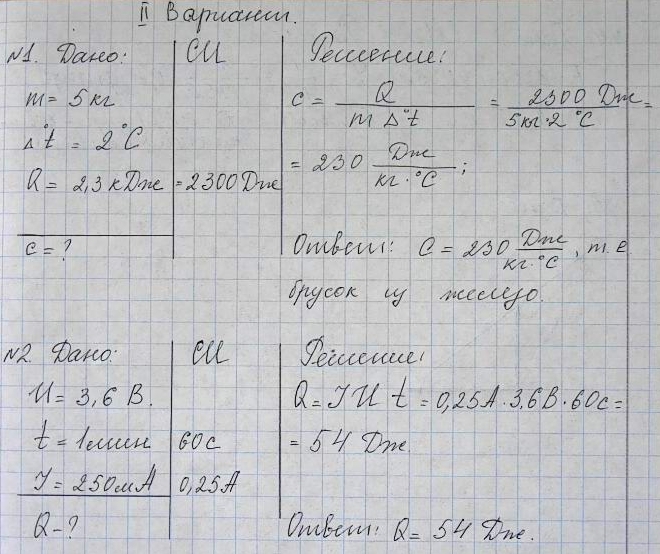 II Вариант.
№1. Дано:
СИ
Решение:
m = 5 кг
Δ°t = 2°C
Q = 2,3 кДж
= 2300 Дж
c = ?
c = Q / m Δ°t = 2300 Дж / 5кг·2°C =
= 230 Дж / кг·°C ;
Ответ: C = 230 Дж / кг·°C , т.е.
брусок из железо.
№2. Дано:
СИ
Решение:
U = 3,6 В.
t = 1 мин
60с
I = 250мА
0,25А
Q - ?
Q = I U t = 0,25А · 3,6В · 60с =
= 54 Дж.
Ответ: Q = 54 Дж.